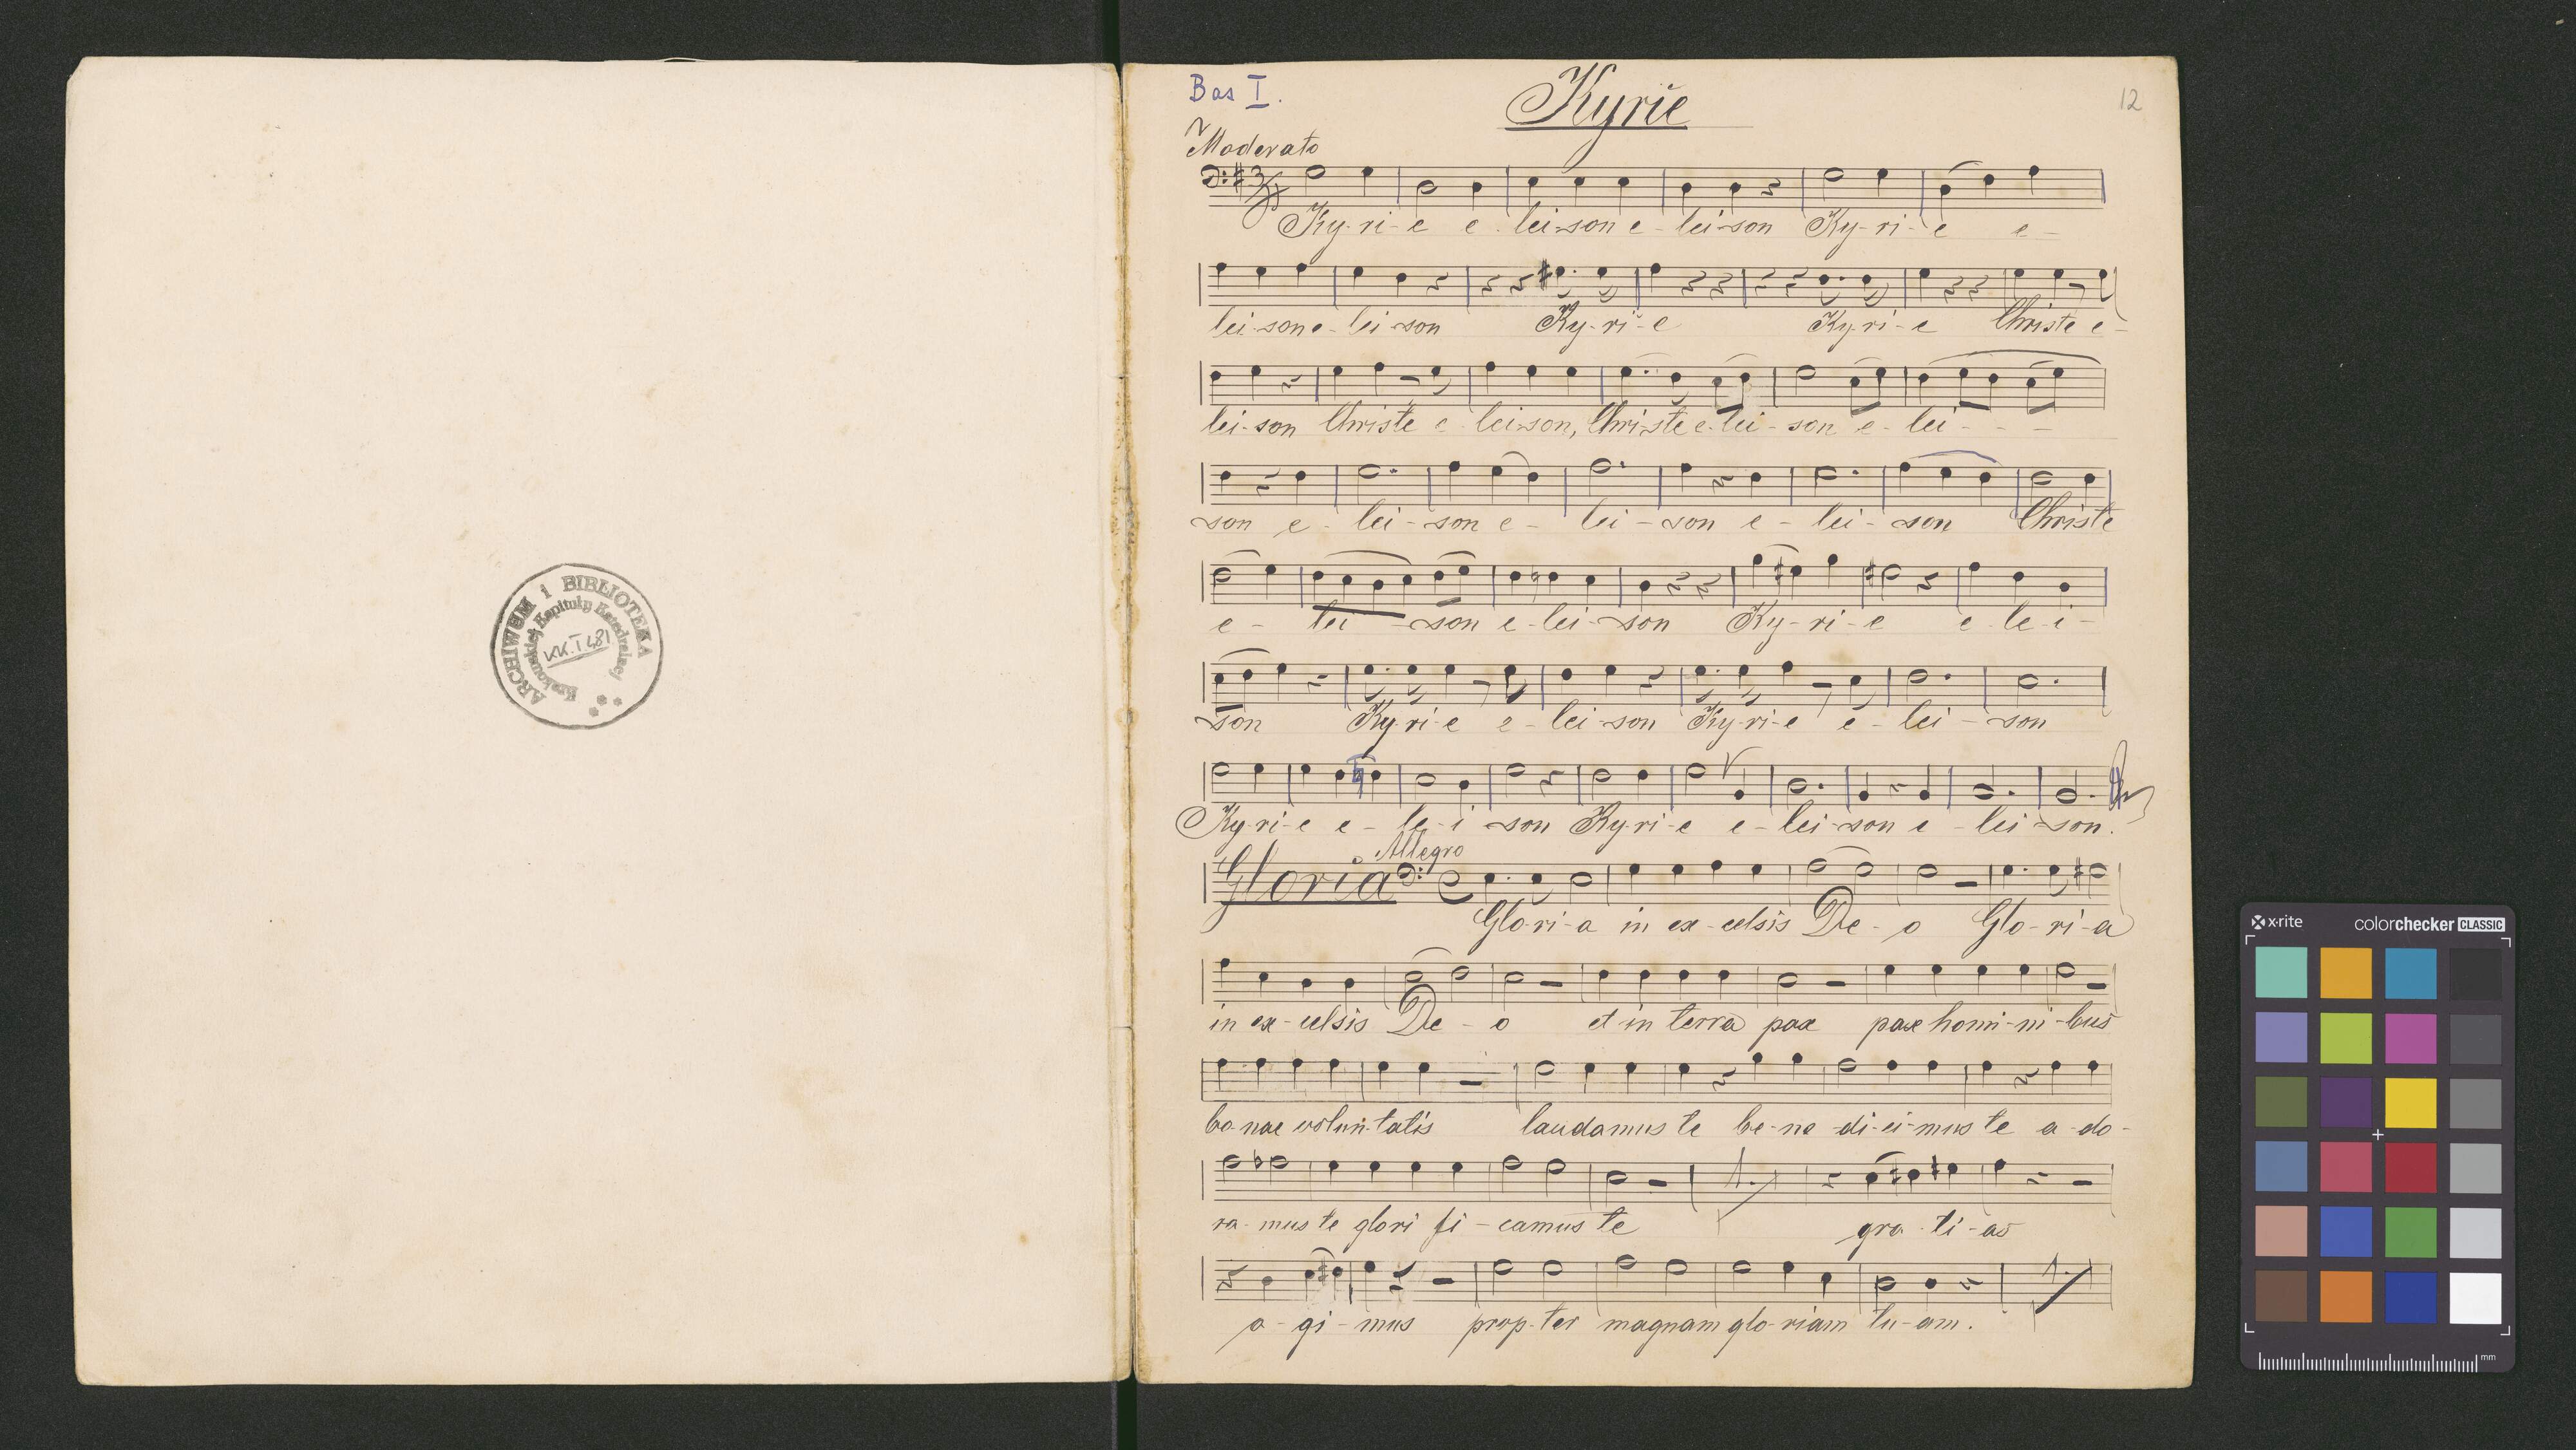 ARCHIWUM i BIBLIOTEKA
Krakowskiej Kapituły Katedralnej
KK. I 481
Bas I.
Kyrie
12
Moderato
Ky-ri-e e-lei-son e-lei-son Ky-ri-e e-
lei-son e-lei-son Ky-ri-e Ky-ri-e Christe e-
lei-son Christe e-lei-son, Christe e-lei-son e-lei---
son e-lei-son e-lei-son e-lei-son Christe
e-lei-son e-lei-son Ky-ri-e e-le-i-
son Ky-ri-e e-lei-son Ky-ri-e e-lei-son
Ky-ri-e e-le-i-son Ky-ri-e e-lei-son e-lei-son.
Gloria Allegro
Glo-ri-a in ex-celsis De-o Glo-ri-a
in ex-celsis De-o et in terra pax pax homi-ni-bus
bo-nae volun-tatis laudamus te be-ne-di-ci-mus te a-do-
ra-mus te glori fi-camus te gra-ti-as
a-gi-mus prop-ter magnam glo-riam tu-am.
x-rite colorchecker CLASSIC
mm